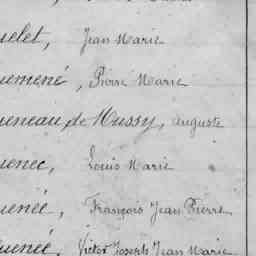 uelet, Jean Marie
uemené, Pierre Marie
ueneau de Mussy, Auguste
uenec, Louis Marie
uenée, François Jean Pierre
uenée, Victor Joseph Jean Marie